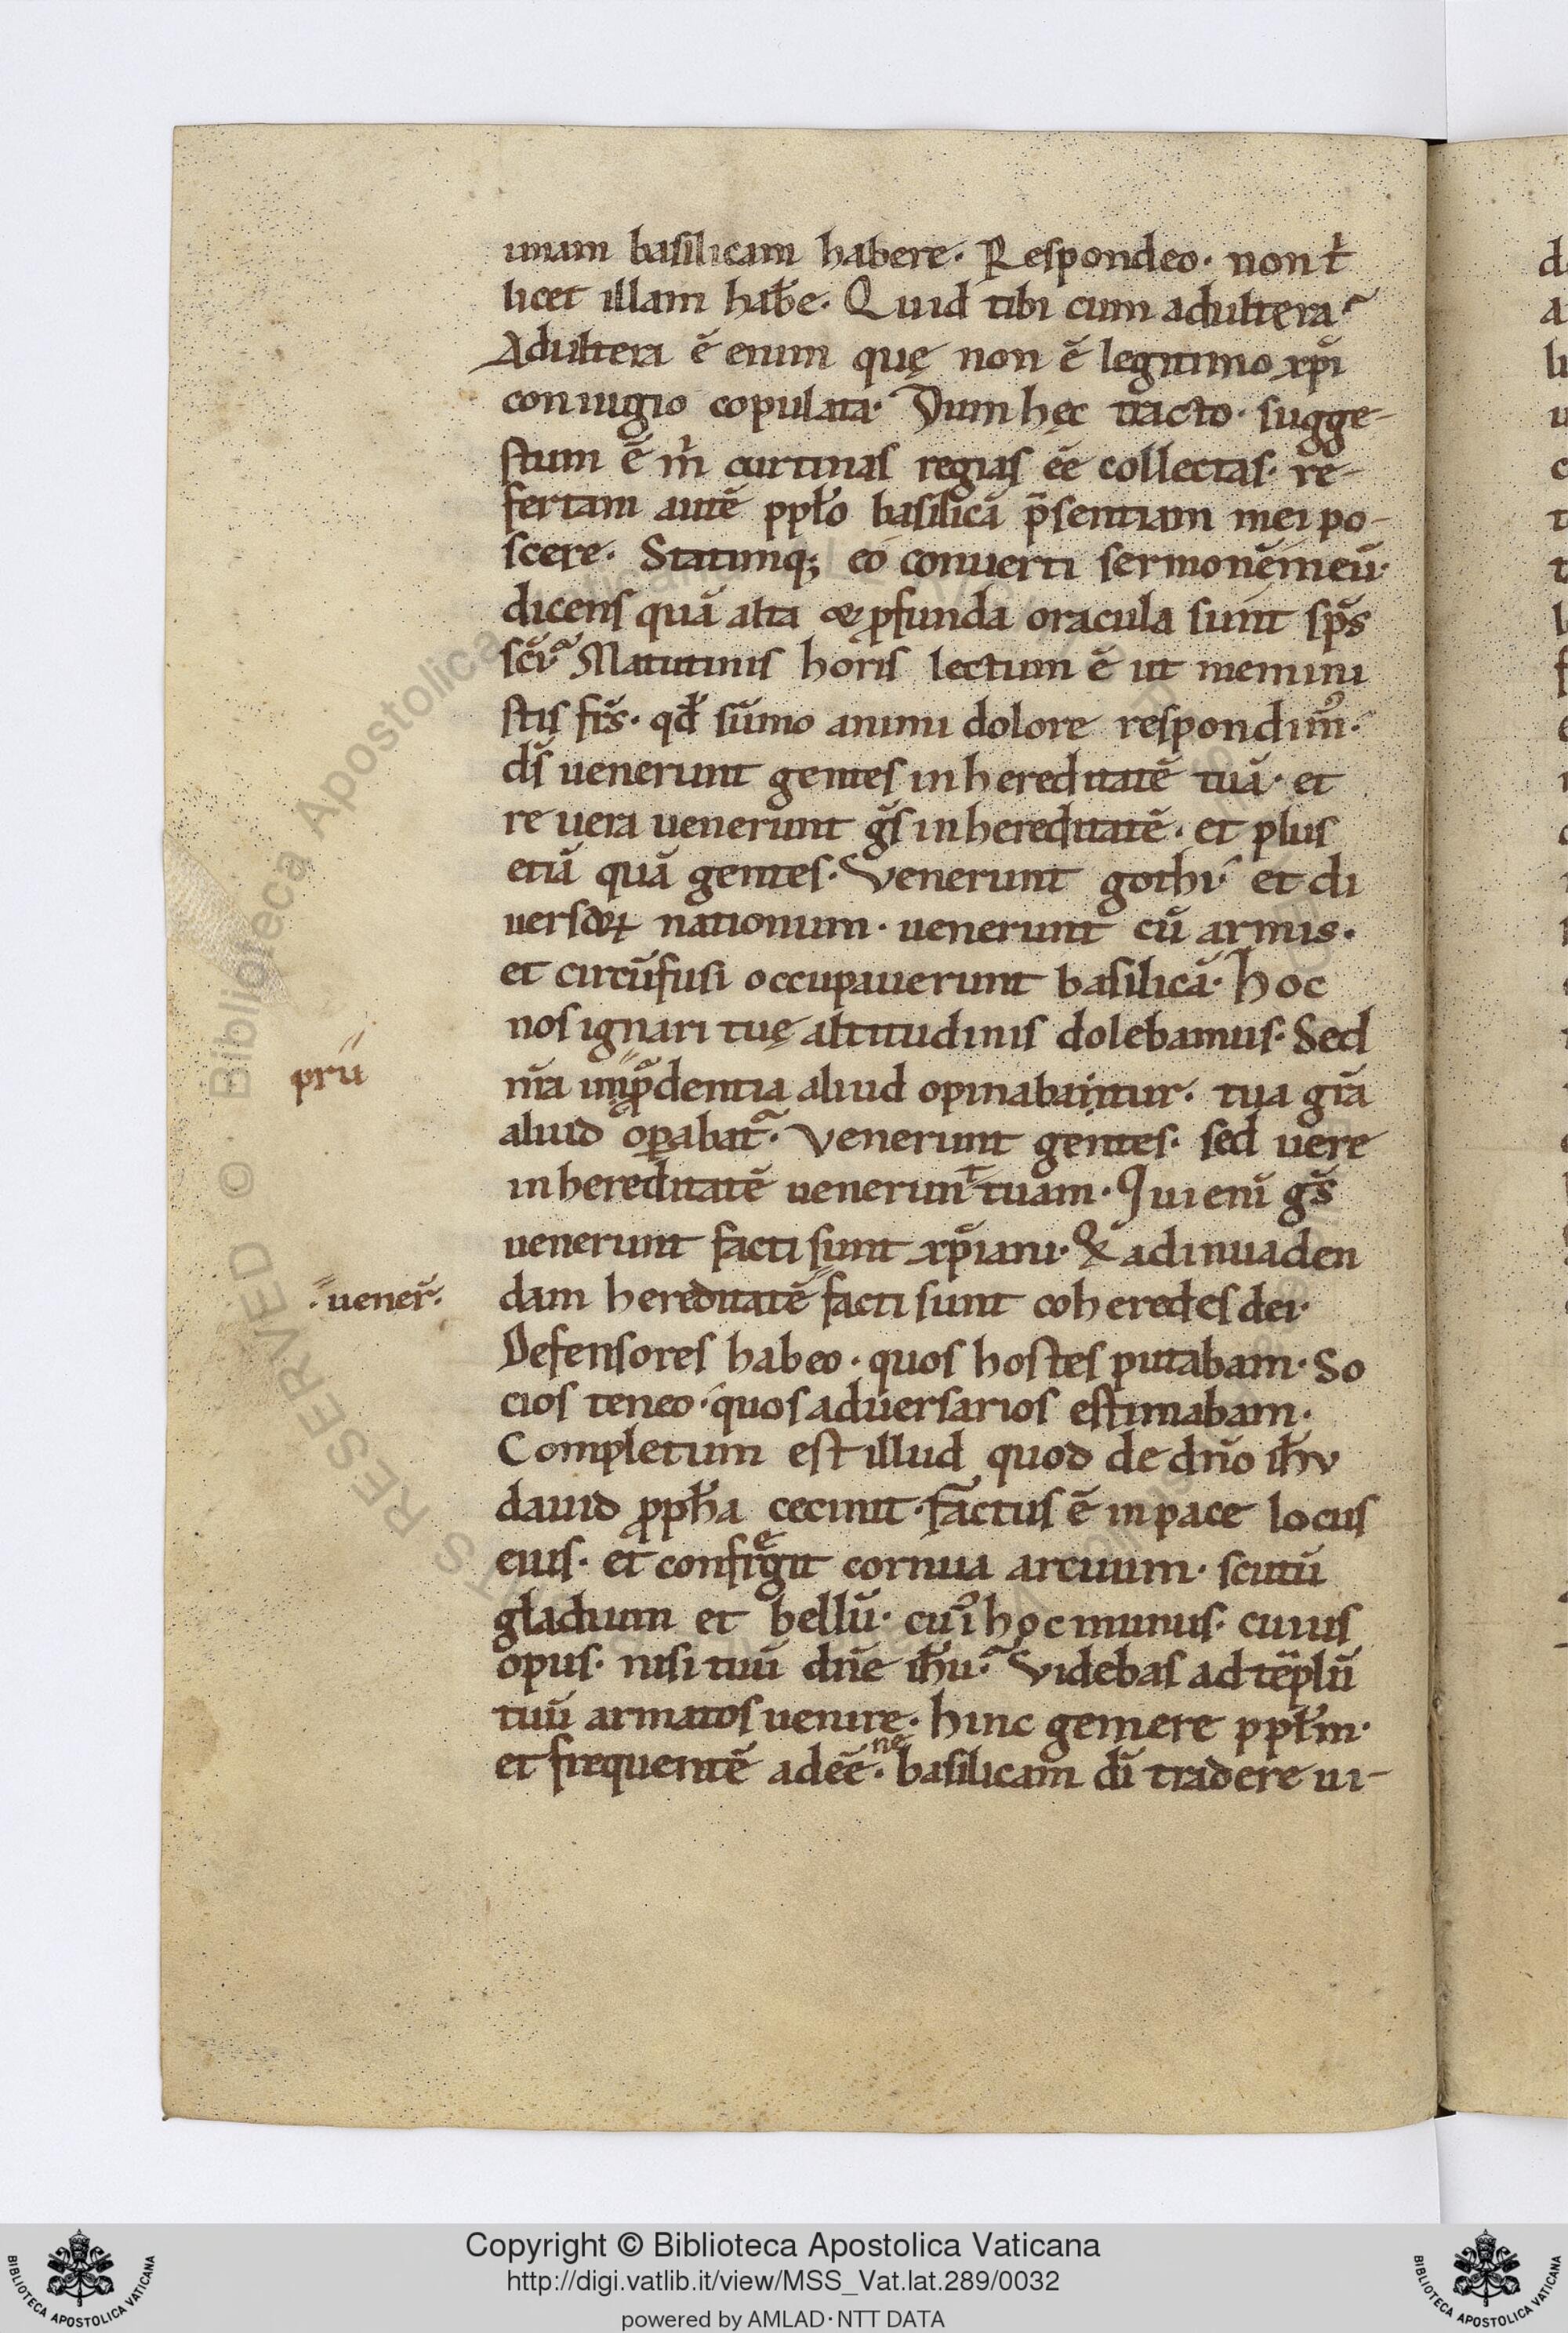 unam basilicam habere. Respondeo. non t̓
licet illam hab̄e. Quid tibi cum adultera?
Adultera ē enim quę non ē legitimo xp̄i
coniugio copulata. Dum hęc tracto. sugge-
stum ē m̓ cortinas regias eē collectas. re-
fertam autē pplo basilicā p̄sentiam mei po-
scere. Statimq; eo conuerti sermonē meū.
dicens quā alta & ꝓfunda oracula sunt sp̄s
sc̄i? Matutinis horis lectum ē ut memini
stis fr̄s. qđ sūmo animi dolore respondim᷒.
ds̄ uenerunt gentes in hereditatē tuā. et
re uera uenerunt gs̄ in hereditatē. et plus
etiā quā gentes. Venerunt gothi et di
uersaꝝ nationum. uenerunt cū armis.
et circūfusi occupauerunt basilicā. hoc
nos ignari tuę altitudinis dolebamus. Sed
prū
nr̄a imp̄dentia aliud opinabantur. tua grā
aliud oꝑabat᷑. Venerunt gentes. sed uere
in hereditatē uenerunt tuam. Qui enī gs̄
uenerunt facti sunt xp̄iani. Qx ad inuaden
uener̄.
dam hereditatē facti sunt coheredes dei.
Defensores habeo. quos hostes putabam. So
cios teneo. quos aduersarios estimabam.
Completum est illud quod de dn̄o ih̄u
dauid ꝓph̄a cecinit. factus ē in pace locus
eius. et confregit cornua arcuum. scutū
gladium et bellū. cui᷒ hoc munus. cuius
opus. nisi tuū dn̄e ih̄u? Videbas ad tēplū
tuū armatos uenire. hinc gemere pplm̄.
et frequentē adeē. ne basilicam dī tradere ui-
Copyright © Biblioteca Apostolica Vaticana
http://digi.vatlib.it/view/MSS_Vat.lat.289/0032
powered by AMLAD·NTT DATA
BIBLIOTECA APOSTOLICA VATICANA
BIBLIOTECA APOSTOLICA VATICANA